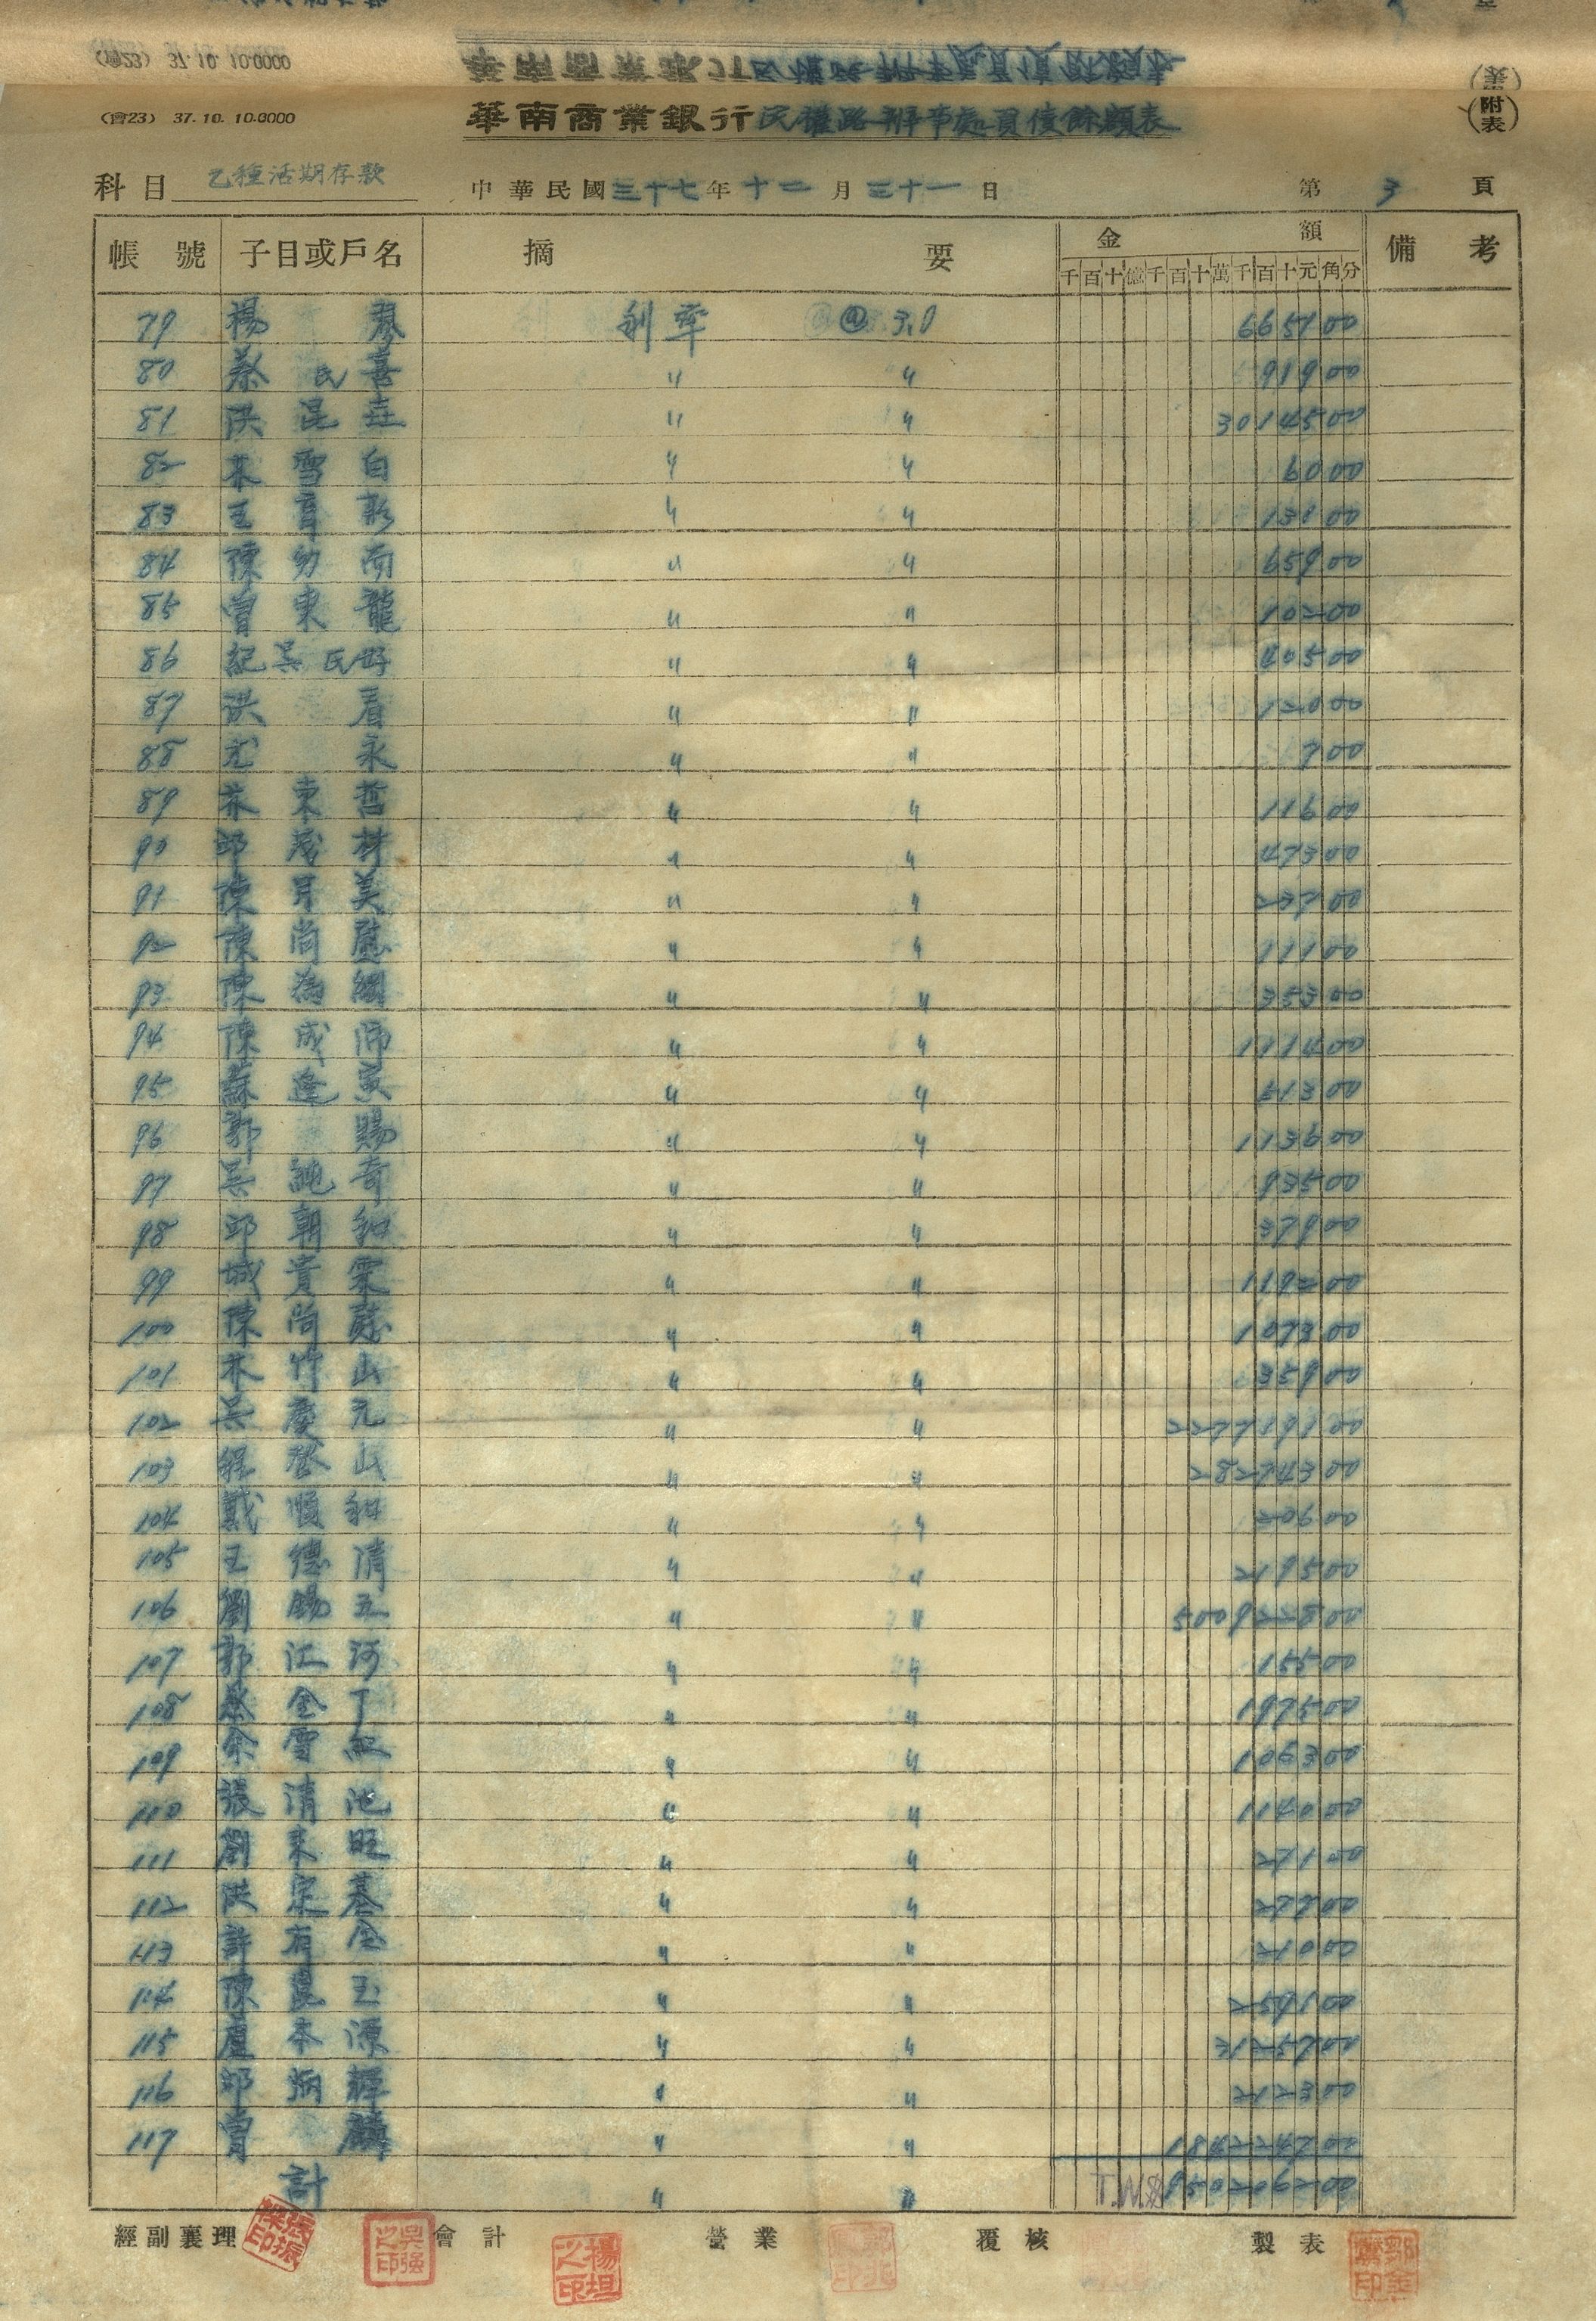 (會23) 37.10.10.0000
華南商業銀行民權路辦事處員債餘額表
(附表)
科目 乙種活期存款 中華民國三十七年十二月三十一日 第3頁
帳號 子目或戶名 摘要 金額 備考
千百十億千百十萬千百十元角分
79 楊 琴 利率 @ 3.0 6651 00
80 蔡氏喜 〃 〃 919 00
81 洪昆 〃 〃 30145 00
82 林雪白 〃 〃 60 00
83 王育彩 〃 〃 00
84 陳幼 〃 〃 659 00
85 曾東龍 〃 〃 102 00
86 紀吳氏好 〃 〃 405 00
87 洪 看 〃 〃 120 00
88 尤 永 〃 〃 7 00
89 林東哲 〃 〃 116 00
90 邱茂林 〃 〃 473 00
91 陳月美 〃 〃 00
92 陳尚慰 〃 〃 111 00
93 陳為綢 〃 〃 353 00
94 陳成沛 〃 〃 1114 00
95 蘇逢 〃 〃 00
96 郭 賜 〃 〃 1136 00
97 吳純奇 〃 〃 935 00
98 邱朝和 〃 〃 379 00
99 城貴霖 〃 〃 1192 00
100 陳尚慰 〃 〃 1073 00
101 林竹山 〃 〃 359 00
102 吳慶元 〃 〃 2277191 00
103 程登山 〃 〃 282743 00
104 戴順和 〃 〃 206 00
105 王德清 〃 〃 2195 00
106 劉錫五 〃 〃 5009228 00
107 郭江河 〃 〃 155 00
108 蔡金丁 〃 〃 1975 00
109 余雪紅 〃 〃 1063 00
110 張清池 〃 〃 1140 00
111 劉來旺 〃 〃 271 00
112 洪定基 〃 〃 222 00
113 許有金 〃 〃 210 00
114 陳崑玉 〃 〃 00
115 盧本源 〃 〃 00
116 邱炳輝 〃 〃 2123 00
117 曾 麟 〃 〃 1842247 00
計 〃 〃 T.W.$ 00
經副襄理 會計 營業 覆核 製表
吳强之印
楊坦之印